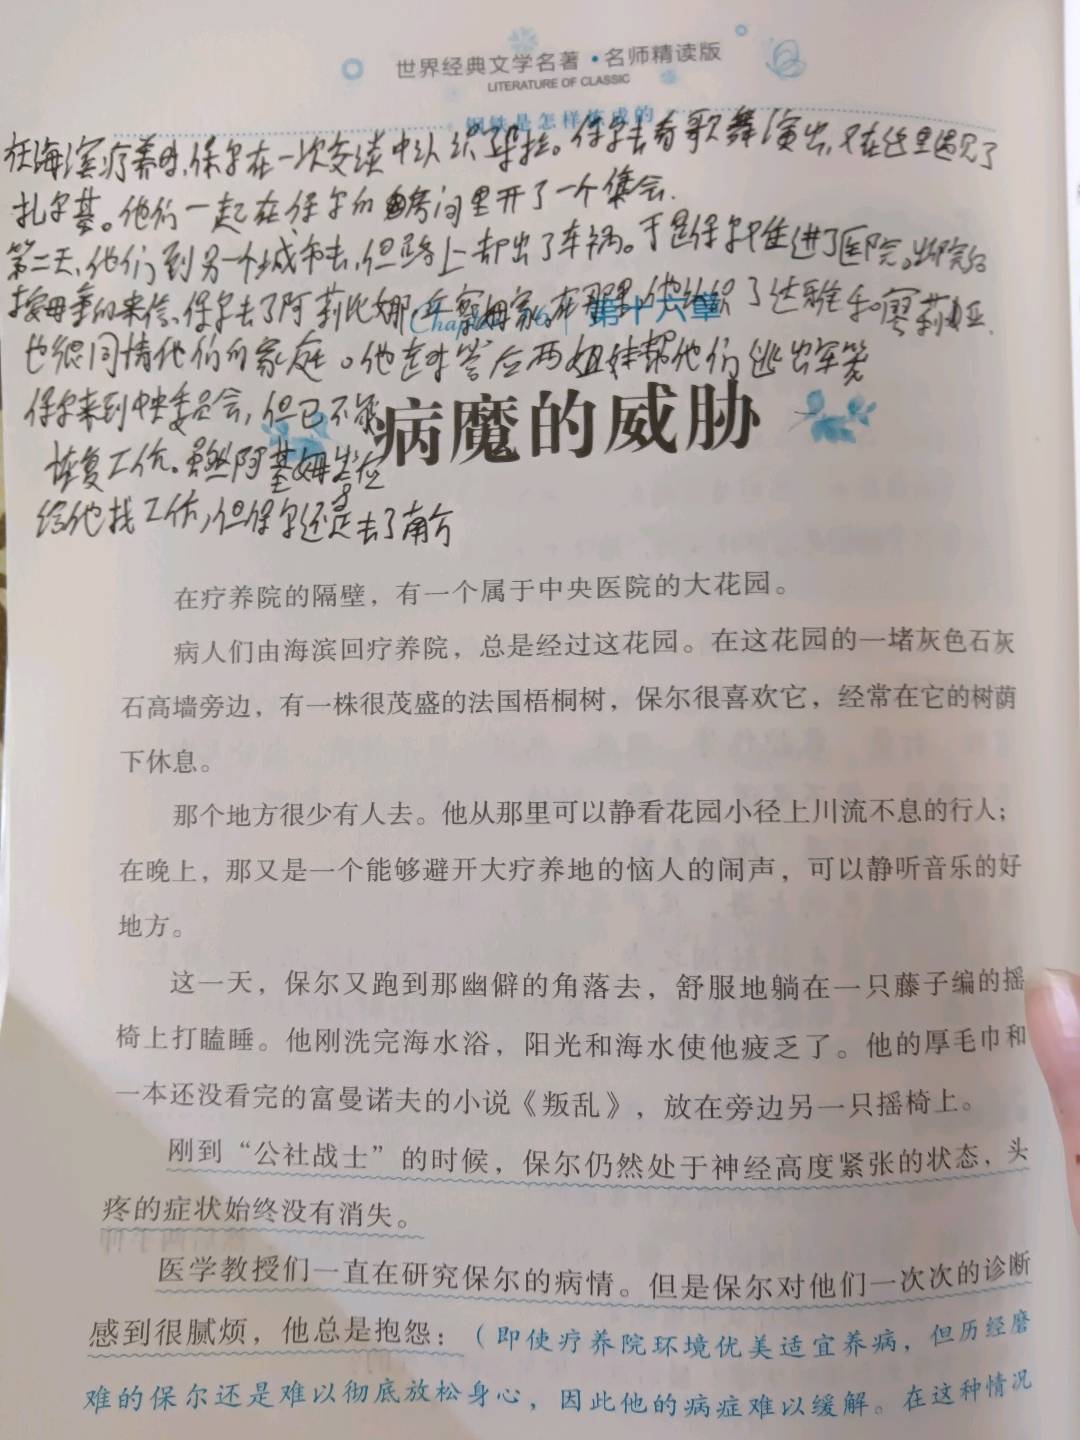 世界经典文学名著·名师精读版
LITERATURE OF CLASSIC
钢铁是怎样炼成的
在海滨疗养时,保尔在一次交谈中认识了朵拉。保尔去看歌舞演出,又在这里遇见了
扎尔基。他们一起在保尔的房间里开了一个集会.
第二天,他们到另一个城市去,但路上却出了车祸。于是保尔又住进了医院。出院后
按母亲的来信,保尔去了阿莉比娜·丘察姆家。在那里,他认识了达雅和廖莉娅.
Chapter 16 第十六章
也很同情他们的家庭。他连忙答应两姐妹帮他们逃出牢笼
保尔来到中央委员会,但已不能
病魔的威胁
恢复工作。虽然阿基姆答应
给他找工作,但保尔还是去了南方
在疗养院的隔壁，有一个属于中央医院的大花园。
病人们由海滨回疗养院，总是经过这花园。在这花园的一堵灰色石灰
石高墙旁边，有一株很茂盛的法国梧桐树，保尔很喜欢它，经常在它的树荫
下休息。
那个地方很少有人去。他从那里可以静看花园小径上川流不息的行人；
在晚上，那又是一个能够避开大疗养地的恼人的闹声，可以静听音乐的好
地方。
这一天，保尔又跑到那幽僻的角落去，舒服地躺在一只藤子编的摇
椅上打瞌睡。他刚洗完海水浴，阳光和海水使他疲乏了。他的厚毛巾和
一本还没看完的富曼诺夫的小说《叛乱》，放在旁边另一只摇椅上。
刚到“公社战士”的时候，保尔仍然处于神经高度紧张的状态，头
疼的症状始终没有消失。
医学教授们一直在研究保尔的病情。但是保尔对他们一次次的诊断
感到很腻烦，他总是抱怨：（即使疗养院环境优美适宜养病，但历经磨
难的保尔还是难以彻底放松身心，因此他的病症难以缓解。在这种情况